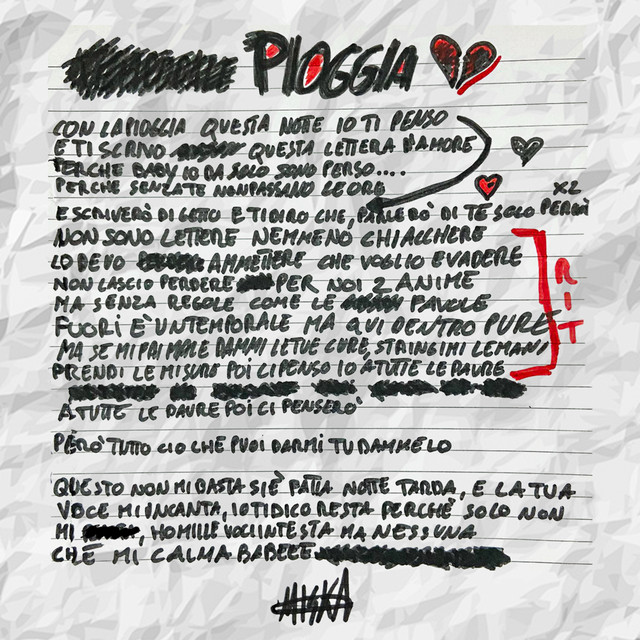 PIOGGIA
CON LA PIOGGIA QUESTA NOTTE IO TI PENSO
E TI SCRIVO QUESTA LETTERA D'AMORE
PERCHE BABY IO DA SOLO SONO PERSO....
PERCHE SENZA TE NON PASSANO LE ORE
X2
E SCRIVERÒ DI GETTO E TI DIRO CHE, PARLERÒ DI TE SOLO PERCHÈ
NON SONO LETTERE NEMMENO CHIACCHERE
LO DEVO AMMETTERE CHE VOGLIO EVADERE
NON LASCIO PERDERE PER NOI 2 ANIME
MA SENZA REGOLE COME LE FAVOLE
FUORI E' UN TEMPORALE MA QUI DENTRO PURE
MA SE MI FAI MALE DAMMI LE TUE CURE, STRINGIMI LE MANI
PRENDI LE MISURE POI CI PENSO IO A TUTTE LE PAURE
RIT
A TUTTE LE PAURE POI CI PENSERO'
PERÒ TUTTO CIO CHE PUOI DARMI TU DAMMELO
QUESTO NON MI BASTA SI È FATTA NOTTE TARDA, E LA TUA
VOCE MI INCANTA, IO TI DICO RESTA PERCHE' SOLO NON
MI , HO MILLE VOCI IN TESTA MA NESSUNA
CHE MI CALMA BABEEE